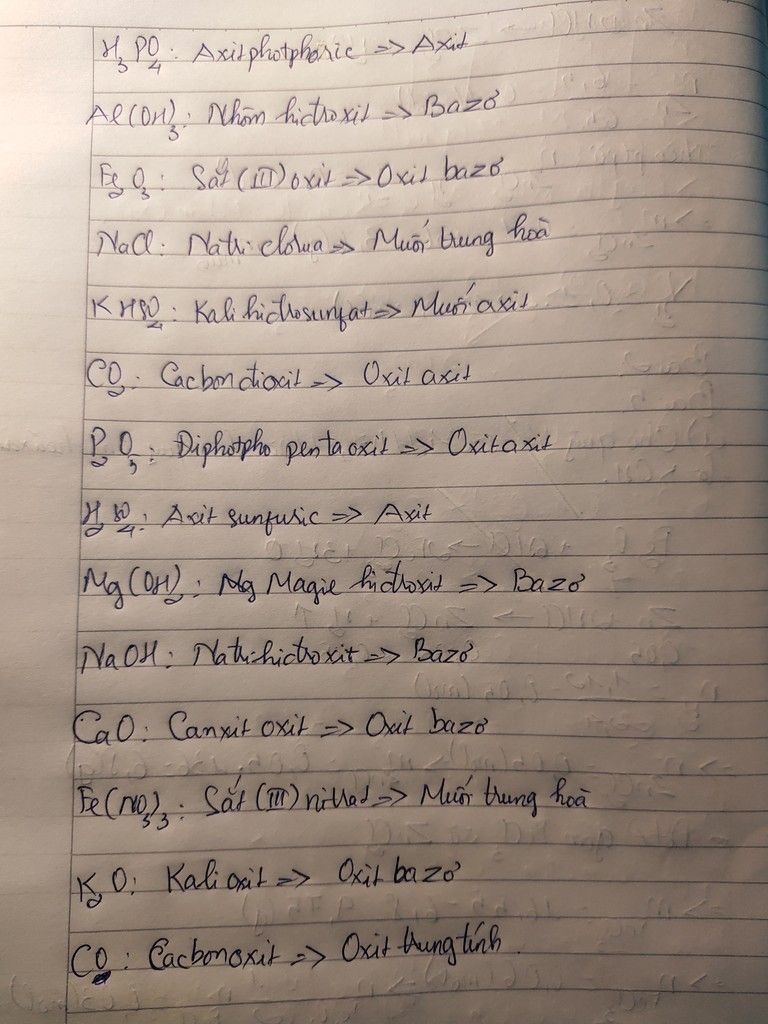 H₃PO₄: Axit photphoric => Axit
Al(OH)₃: Nhôm hiđroxit => Bazơ
Fe₂O₃: Sắt (III) oxit => Oxit bazơ
NaCl: Natri clorua => Muối trung hoà
KHSO₄: Kali hiđrosunfat => Muối axit
CO₂: Cacbon đioxit => Oxit axit
P₂O₅: Điphotpho pentaoxit => Oxit axit
H₂SO₄: Axit sunfuric => Axit
Mg(OH)₂: Mg Magie hiđroxit => Bazơ
NaOH: Natri hiđroxit => Bazơ
CaO: Canxit oxit => Oxit bazơ
Fe(NO₃)₃: Sắt (III) nitrat => Muối trung hoà
K₂O: Kali oxit => Oxit bazơ
CO: Cacbon oxit => Oxit trung tính.